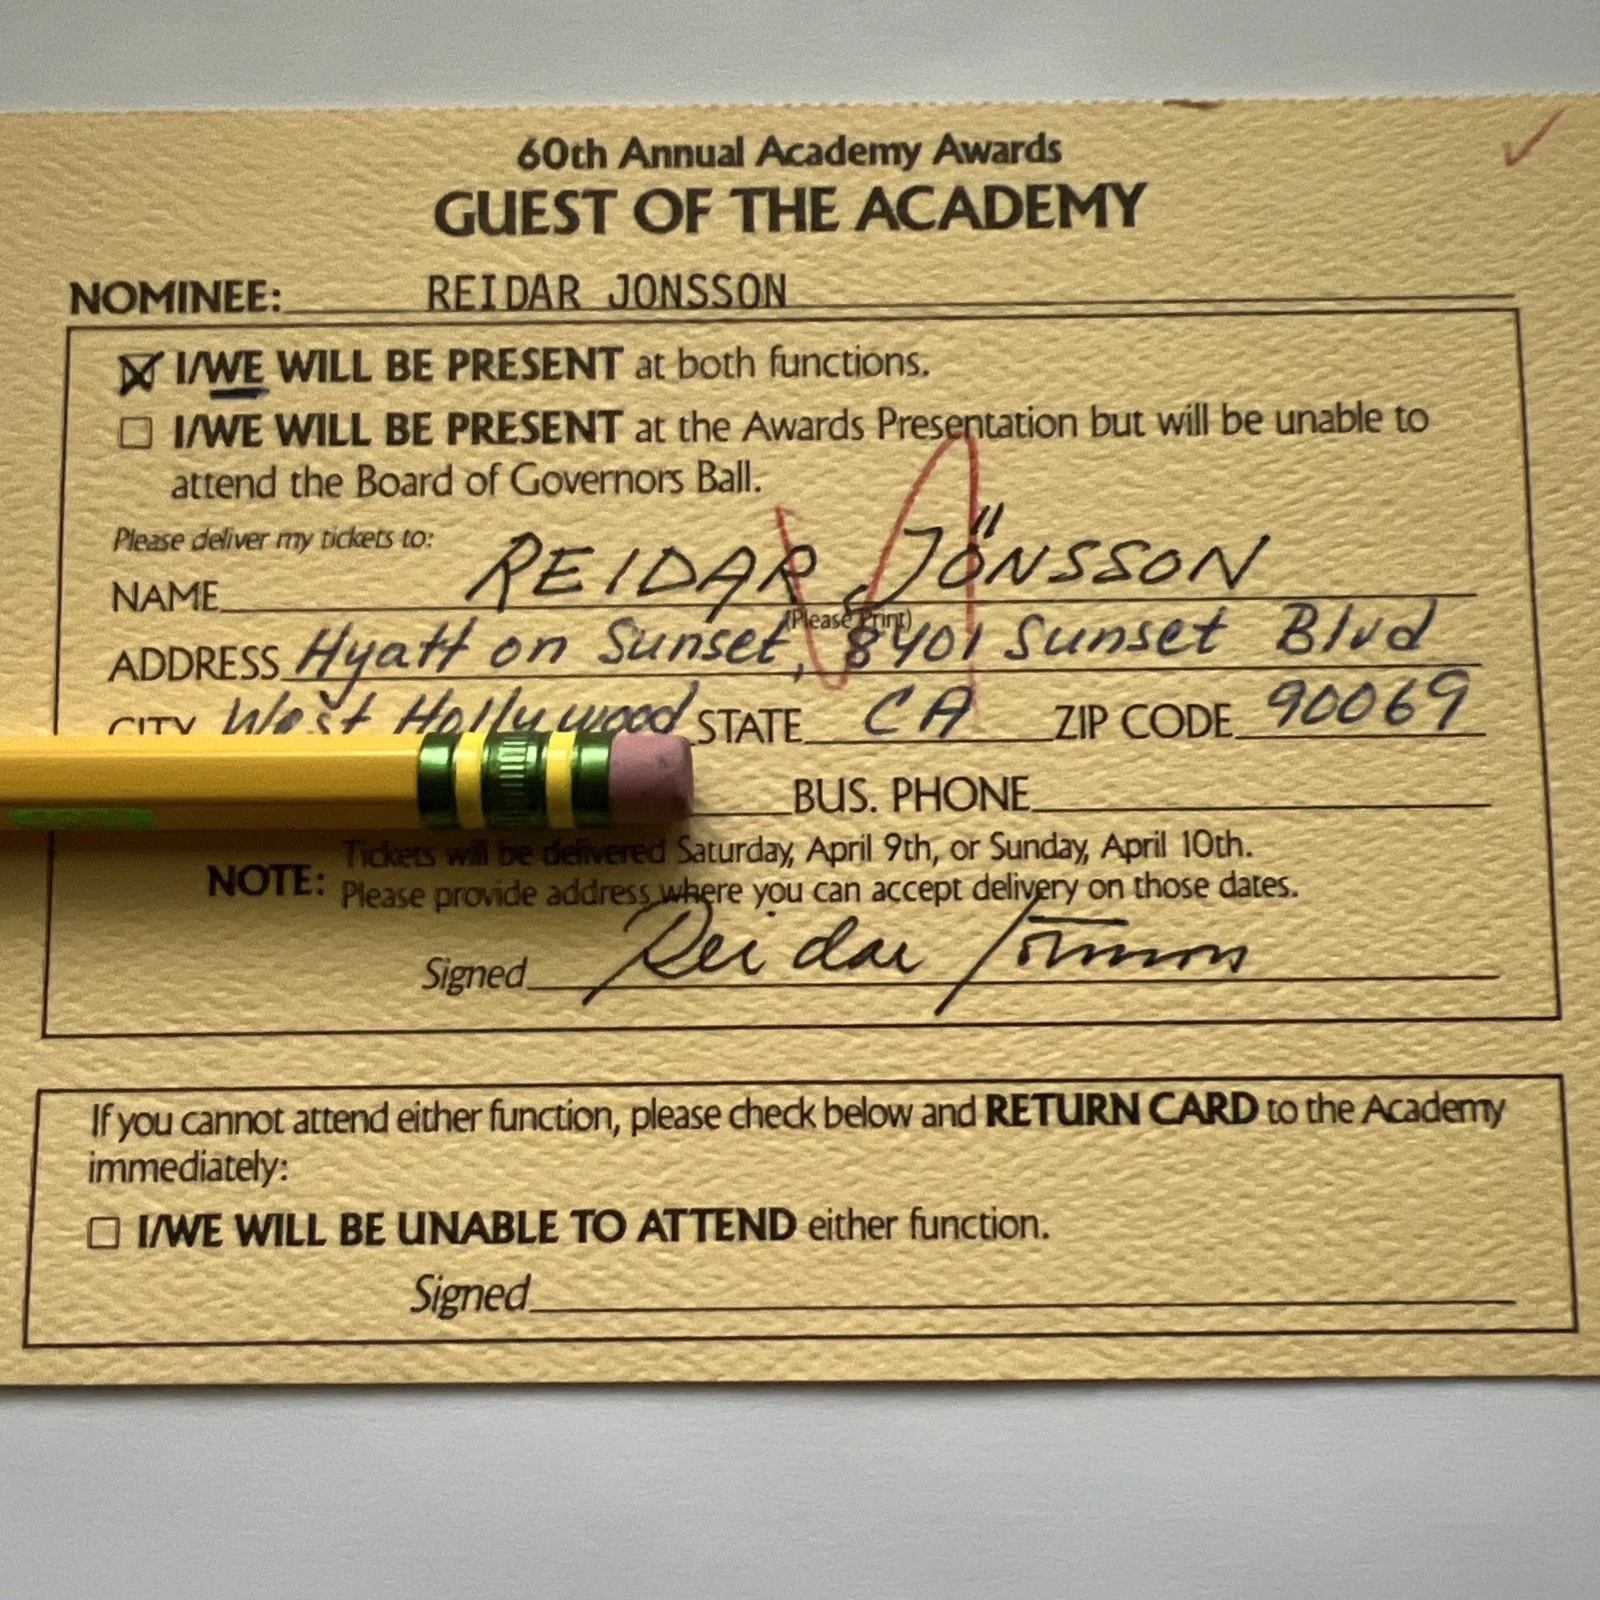 60th Annual Academy Awards
GUEST OF THE ACADEMY
NOMINEE: REIDAR JONSSON
I/WE WILL BE PRESENT at both functions.
I/WE WILL BE PRESENT at the Awards Presentation but will be unable to
attend the Board of Governors Ball.
Please deliver my tickets to:
NAME REIDAR JÖNSSON
(Please Print)
ADDRESS Hyatt on Sunset, 8401 Sunset Blvd
CITY West Hollywood STATE CA ZIP CODE 90069
BUS. PHONE
NOTE: Tickets will be delivered Saturday, April 9th, or Sunday, April 10th.
Please provide address where you can accept delivery on those dates.
Signed Reidar Jönsson
If you cannot attend either function, please check below and RETURN CARD to the Academy
immediately:
I/WE WILL BE UNABLE TO ATTEND either function.
Signed